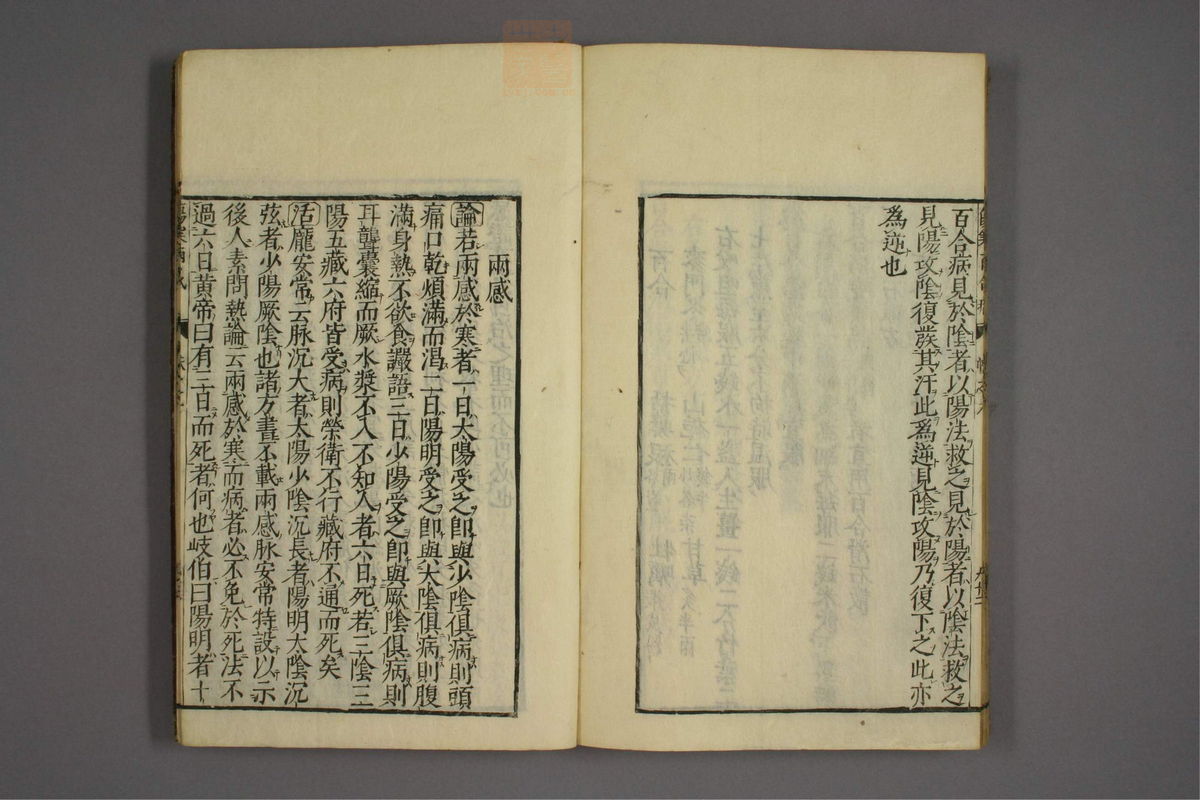 百合病見於陰者以陽法救之見於陽者以陰法救之
見陽攻陰復發其汗此為逆見陰攻陽乃復下之此亦
為逆也
兩感
論若兩感於寒者一日太陽受之即與少陰俱病則頭
痛口乾煩滿而渴二日陽明受之即與太陰俱病則腹
滿身熱不欲食讝語三日少陽受之即與厥陰俱病則
耳聾囊縮而厥水漿不入不知人者六日死若三陰三
陽五藏六府皆受病則榮衛不行藏府不通而死矣
活龐安常云脉沉大者太陽少陰沉長者陽明太陰沉
弦者少陽厥陰也諸方書不載兩感脉安常特設以示
後人素問熱論云兩感於寒而病者必不免於死法不
過六日黃帝曰有三日而死者何也岐伯曰陽明者十